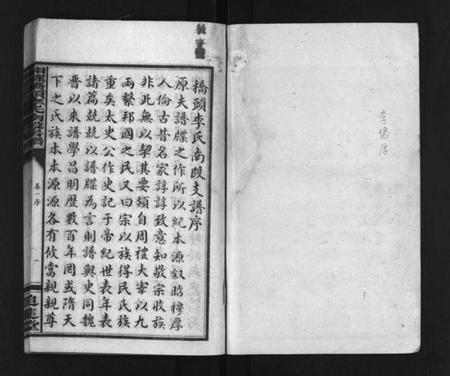 橋頭李氏南段支譜序
原夫譜牒之作所以紀本源叙昭穆厚
人倫古昔名家諄諄致意知敬宗收族
非此無以挈其要領自周禮大宰以九
兩繫邦國之民又曰宗以族得民民族
重矣太史公作史記于帝紀世表年表
諸篇兢兢以譜牒為言則譜與史同魏
晉以來譜學昌明歷數百年罔或隋天
下之氏族本本源源各有攸當親親尊
卷一序
一
李氏序